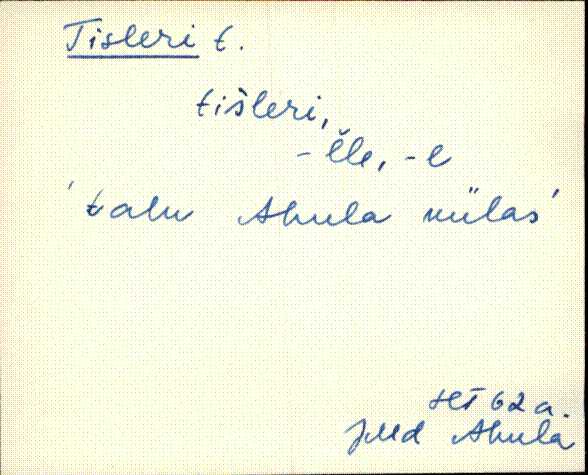 Tisleri t.
tišleri,
- ĕle, -e
'talu Ahula külas'
HI 62 a.
JMd Ahula